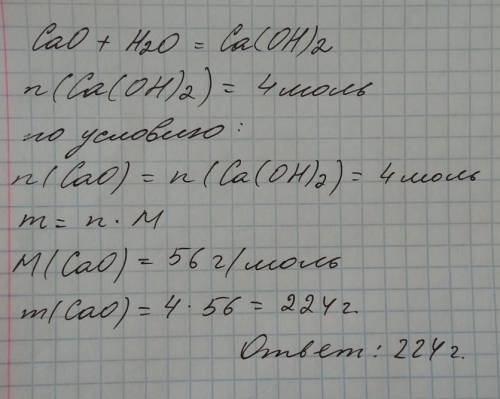 CaO + H2O = Ca(OH)2
n(Ca(OH)2) = 4 моль
по условию:
n(CaO) = n(Ca(OH)2) = 4 моль
m = n · M
M(CaO) = 56 г/моль
m(CaO) = 4 · 56 = 224 г.
Ответ: 224 г.